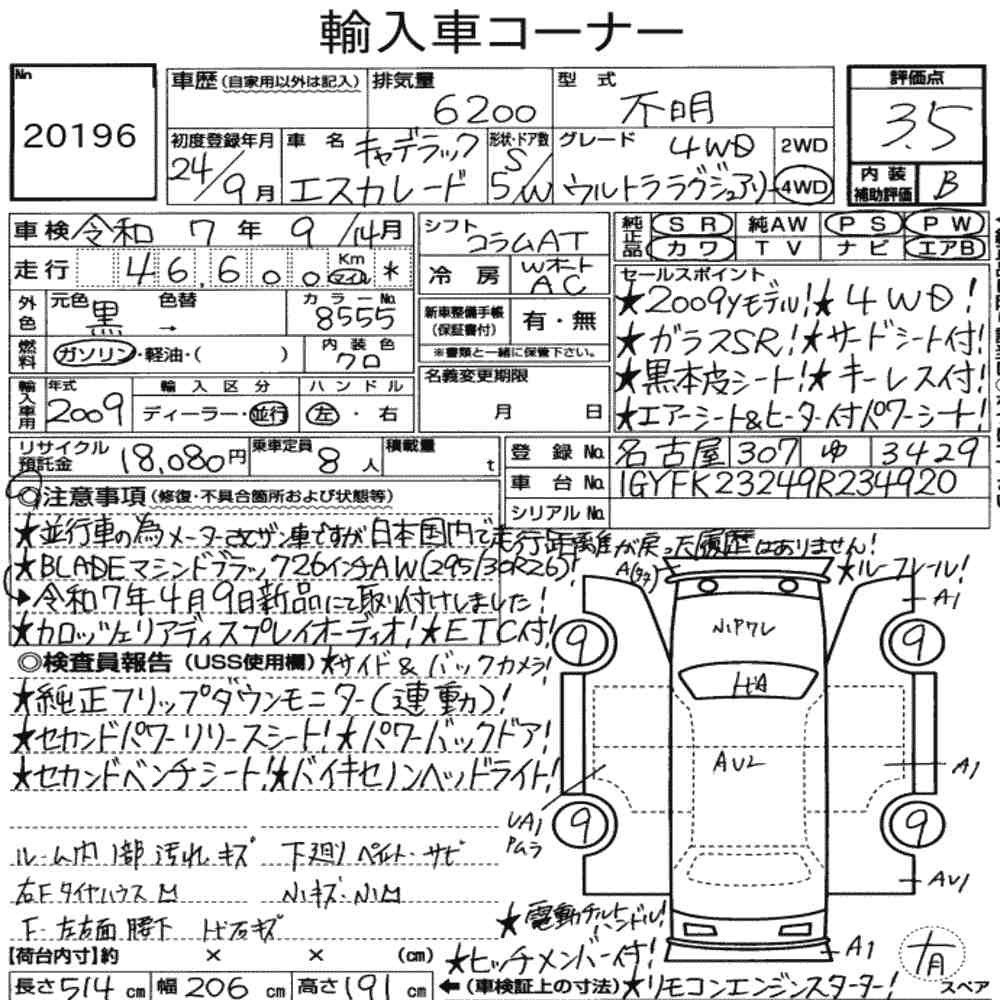 輸入車コーナー
No 20196
車歴(自家用以外は記入) 排気量 6200 型式 不明
評価点 3.5
初度登録年月 24/9月 車名 キャデラック エスカレード 形状・ドア数 S 5/W グレード 4WD ウルトララグジュアリー 2WD 4WD
内装補助評価 B
車検 令和 7年 9/14月
シフト コラムAT
純正品 SR 純AW PS PW
カワ TV ナビ エアB
走行 46,600 Km マイル *
冷房 Wオート AC
セールスポイント
★2009yモデル!★4WD!
★ガラスSR!★サードシート付!
★黒本皮シート!★キーレス付!
★エアーシート&ヒーター付パワーシート!
外色 元色 黒 色替 → カラーNo. 8555
新車整備手帳(保証書付) 有・無
※書類と一緒に保管下さい。
燃料 ガソリン・軽油・( ) 内装色 クロ
名義変更期限 月 日
輸入車用 年式 2009 輸入区分 ディーラー・並行 ハンドル 左・右
リサイクル預託金 18,080円 乗車定員 8人 積載量 t
登録No. 名古屋 307 ゆ 3429
車台No. 1GYFK23249R234920
シリアルNo.
◎注意事項(修復・不具合箇所および状態等)
★並行車の為メーター改ザン車ですが日本国内で走行距離が戻った履歴はありません!
★BLADEマシンドブラック26インチAW(295/30R26)!
→令和7年4月9日新品にて取り付けしました!
★カロッツェリアディスプレイオーディオ!★ETC付!
◎検査員報告(USS使用欄)★サイド&バックカメラ!
★純正フリップダウンモニター(連動)!
★セカンドパワーリリースシート!★パワーバックドア!
★セカンドベンチシート!★バイキセノンヘッドライト!
ルーム内 1部 汚れ キズ 下廻り ペイント・サビ
右Fタイヤハウス M N1キズ・N1M
F・左右面 腰下 トビ石キズ
★ルーフレール!
A1
9
9
N1Pクレ
HA
AU2
A1
UA1
9
9
AU1
A1
★電動チルトハンドル!
★ヒッチメンバー付!
★リモコンエンジンスターター!
有
スペア
【荷台内寸】約 × × (cm)
長さ514cm 幅206cm 高さ191cm ←(車検証上の寸法)